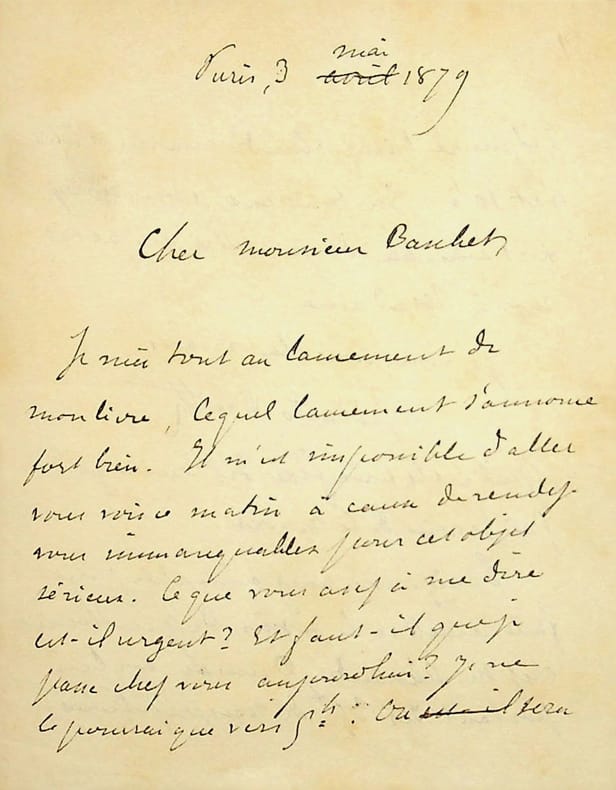 Paris, 3 avril mai 1879
Cher monsieur Baschet,
Je suis tout au lancement de
mon livre, lequel lancement s'annonce
fort bien. Il m'est impossible d'aller
vous voir ce matin à cause de rendez-
vous immanquables pour cet objet
sérieux. Ce que vous avez à me dire
est-il urgent? Et faut-il que je
passe chez vous aujourd'hui? Je ne
le pourrai que vers 5h. Ou il sera